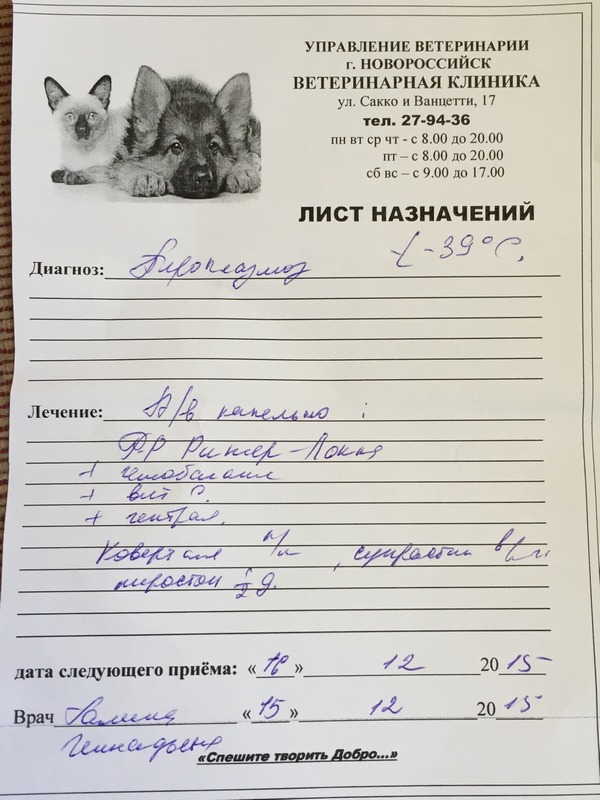 УПРАВЛЕНИЕ ВЕТЕРИНАРИИ
г. НОВОРОССИЙСК
ВЕТЕРИНАРНАЯ КЛИНИКА
ул. Сакко и Ванцетти, 17
тел. 27-94-36
пн вт ср чт - с 8.00 до 20.00
пт – с 8.00 до 20.00
сб вс – с 9.00 до 17.00
ЛИСТ НАЗНАЧЕНИЙ
t -39°C.
Диагноз: Пироплазмоз
Лечение: В/в капельно :
Р-Р Рингер-Локка
+ гемобаланс
+ вит С.
+ гептрал.
Ковертал п/к, супрастин в/м
пиростоп 1/2 д.
дата следующего приёма: «16» 12 2015
Врач Галина «15» 12 2015
Геннадьевна
«Спешите творить Добро...»